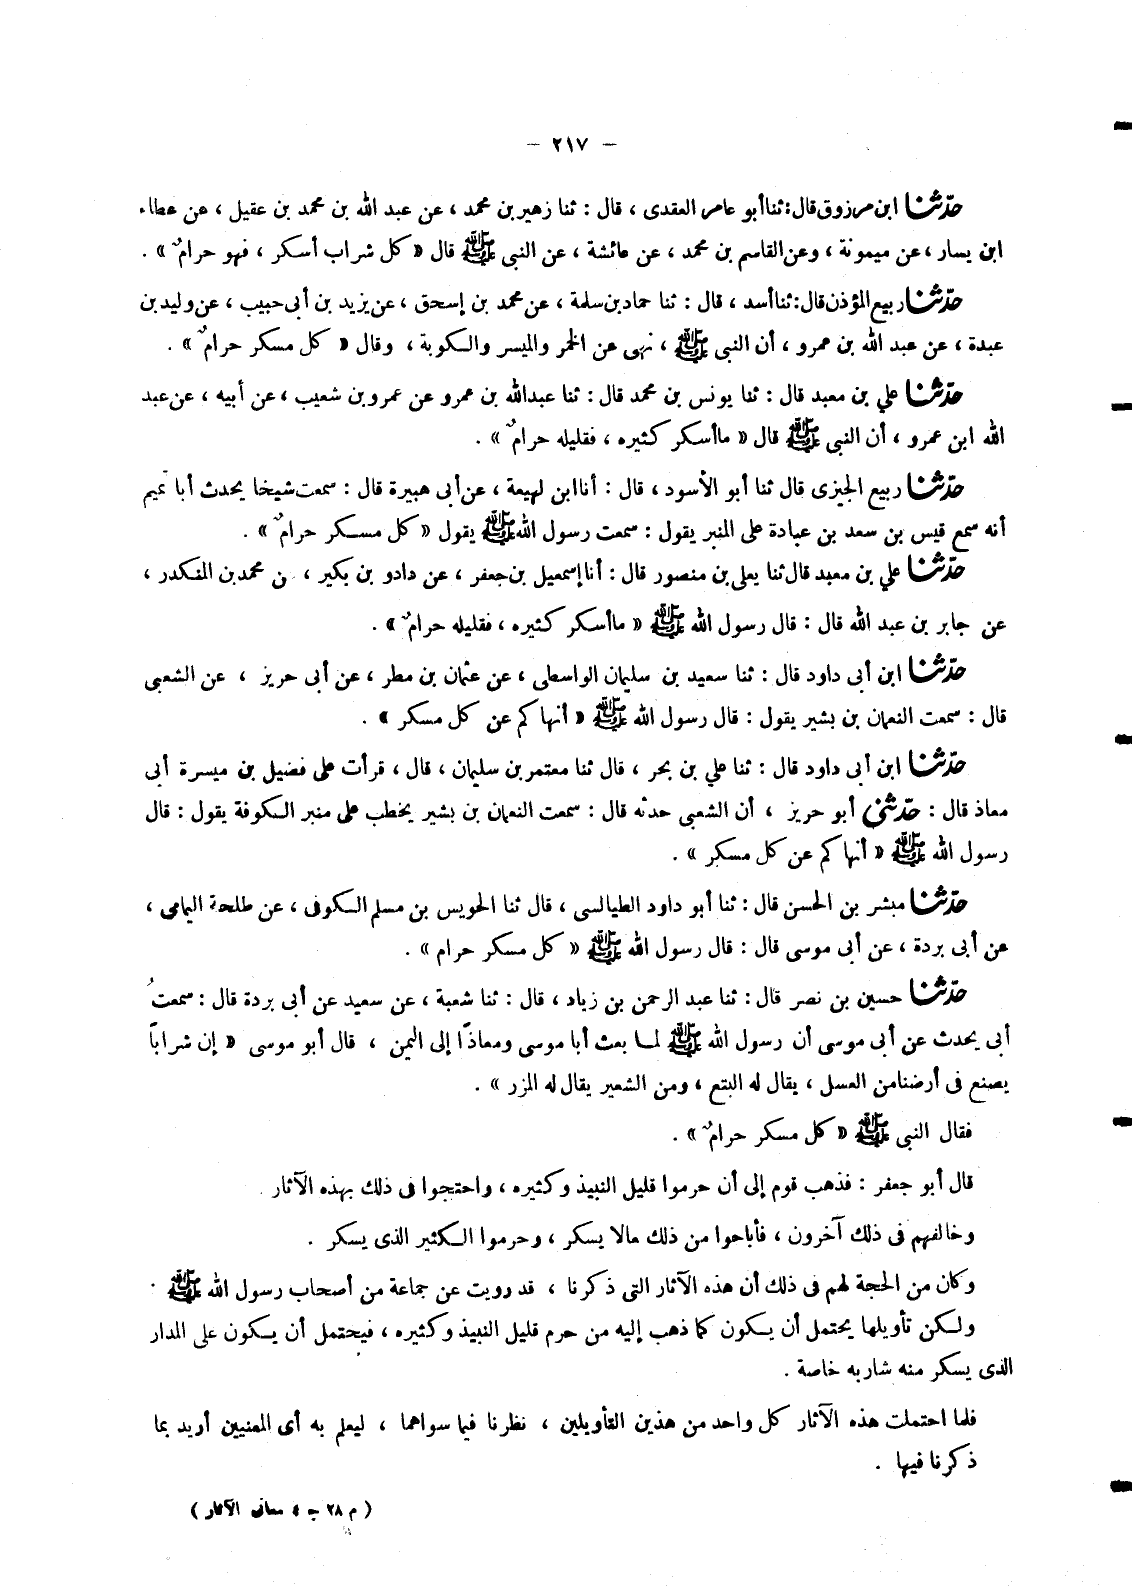 — ٢١٧ —
حدّثنا ابن مرزوق قال: ثنا أبو عامر العقدى ، قال : ثنا زهير بن محمد ، عن عبد الله بن محمد بن عقيل ، عن عطاء
ابن يسار ، عن ميمونة ، وعن القاسم بن محمد ، عن عائشة ، عن النبى ﷺ قال « كل شراب أسكر ، فهو حرامٌ » .
حدّثنا ربيع المؤذن قال: ثنا أسد ، قال : ثنا حماد بن سلمة ، عن محمد بن إسحق ، عن يزيد بن أبى حبيب ، عن وليد بن
عبدة ، عن عبد الله بن عمرو ، أن النبى ﷺ ، نهى عن الخمر والميسر والكوبة ، وقال « كل مسكر حرامٌ » .
حدّثنا علي بن معبد قال : ثنا يونس بن محمد قال : ثنا عبدالله بن عمرو عن عمرو بن شعيب ، عن أبيه ، عن عبد
الله ابن عمرو ، أن النبى ﷺ قال « ما أسكر كثيره ، فقليله حرامٌ » .
حدّثنا ربيع الجيزى قال ثنا أبو الأسود ، قال : أنا ابن لهيعة ، عن أبى هبيرة قال : سمعت شيخا يحدث أبا تميم
أنه سمع قيس بن سعد بن عبادة على المنبر يقول : سمعت رسول الله ﷺ يقول « كل مسكر حرامٌ » .
حدّثنا علي بن معبد قال ثنا يعلى بن منصور قال : أنا إسمعيل بن جعفر ، عن دادو بن بكير ، ن محمد بن المنكدر ،
عن جابر بن عبد الله قال : قال رسول الله ﷺ « ما أسكر كثيره ، فقليله حرامٌ » .
حدّثنا ابن أبى داود قال : ثنا سعيد بن سليمان الواسطى ، عن عثمان بن مطر ، عن أبى حريز ، عن الشعبى
قال : سمعت النعمان بن بشير يقول : قال رسول الله ﷺ « أنهاكم عن كل مسكر » .
حدّثنا ابن أبى داود قال : ثنا علي بن بحر ، قال ثنا معتمر بن سليمان ، قال ، قرأت على فضيل بن ميسرة أبى
معاذ قال : حدّثنى أبو حريز ، أن الشعبى حدثه قال : سمعت النعمان بن بشير يخطب على منبر الكوفة يقول : قال
رسول الله ﷺ « أنهاكم عن كل مسكر » .
حدّثنا مبشر بن الحسن قال : ثنا أبو داود الطيالسى ، قال ثنا الحويس بن مسلم الكوفى ، عن طلحة اليامى ،
عن أبى بردة ، عن أبى موسى قال : قال رسول الله ﷺ « كل مسكر حرام » .
حدّثنا حسين بن نصر قال : ثنا عبد الرحمن بن زياد ، قال : ثنا شعبة ، عن سعيد عن أبى بردة قال : سمعتُ
أبى يحدث عن أبى موسى أن رسول الله ﷺ لما بعث أبا موسى ومعاذًا إلى اليمن ، قال أبو موسى « إن شراباً
يصنع فى أرضنا من العسل ، يقال له البتع ، ومن الشعير يقال له المزر » .
فقال النبى ﷺ « كل مسكر حرامٌ » .
قال أبو جعفر : فذهب قوم إلى أن حرموا قليل النبيذ وكثيره ، واحتجوا فى ذلك بهذه الآثار .
وخالفهم فى ذلك آخرون ، فأباحوا من ذلك مالا يسكر ، وحرموا الكثير الذى يسكر .
وكان من الحجة لهم فى ذلك أن هذه الآثار التى ذكرنا ، قد رويت عن جماعة من أصحاب رسول الله ﷺ .
ولكن تأويلها يحتمل أن يكون كما ذهب إليه من حرم قليل النبيذ وكثيره ، فيحتمل أن يكون على المدار
الذى يسكر منه شاربه خاصة .
فلما احتملت هذه الآثار كل واحد من هذين التأويلين ، نظرنا فيما سواهما ، ليعلم به أى المعنيين أريد بما
ذكرنا فيها .
( م ٢٨ جـ ٤ معانى الآثار )